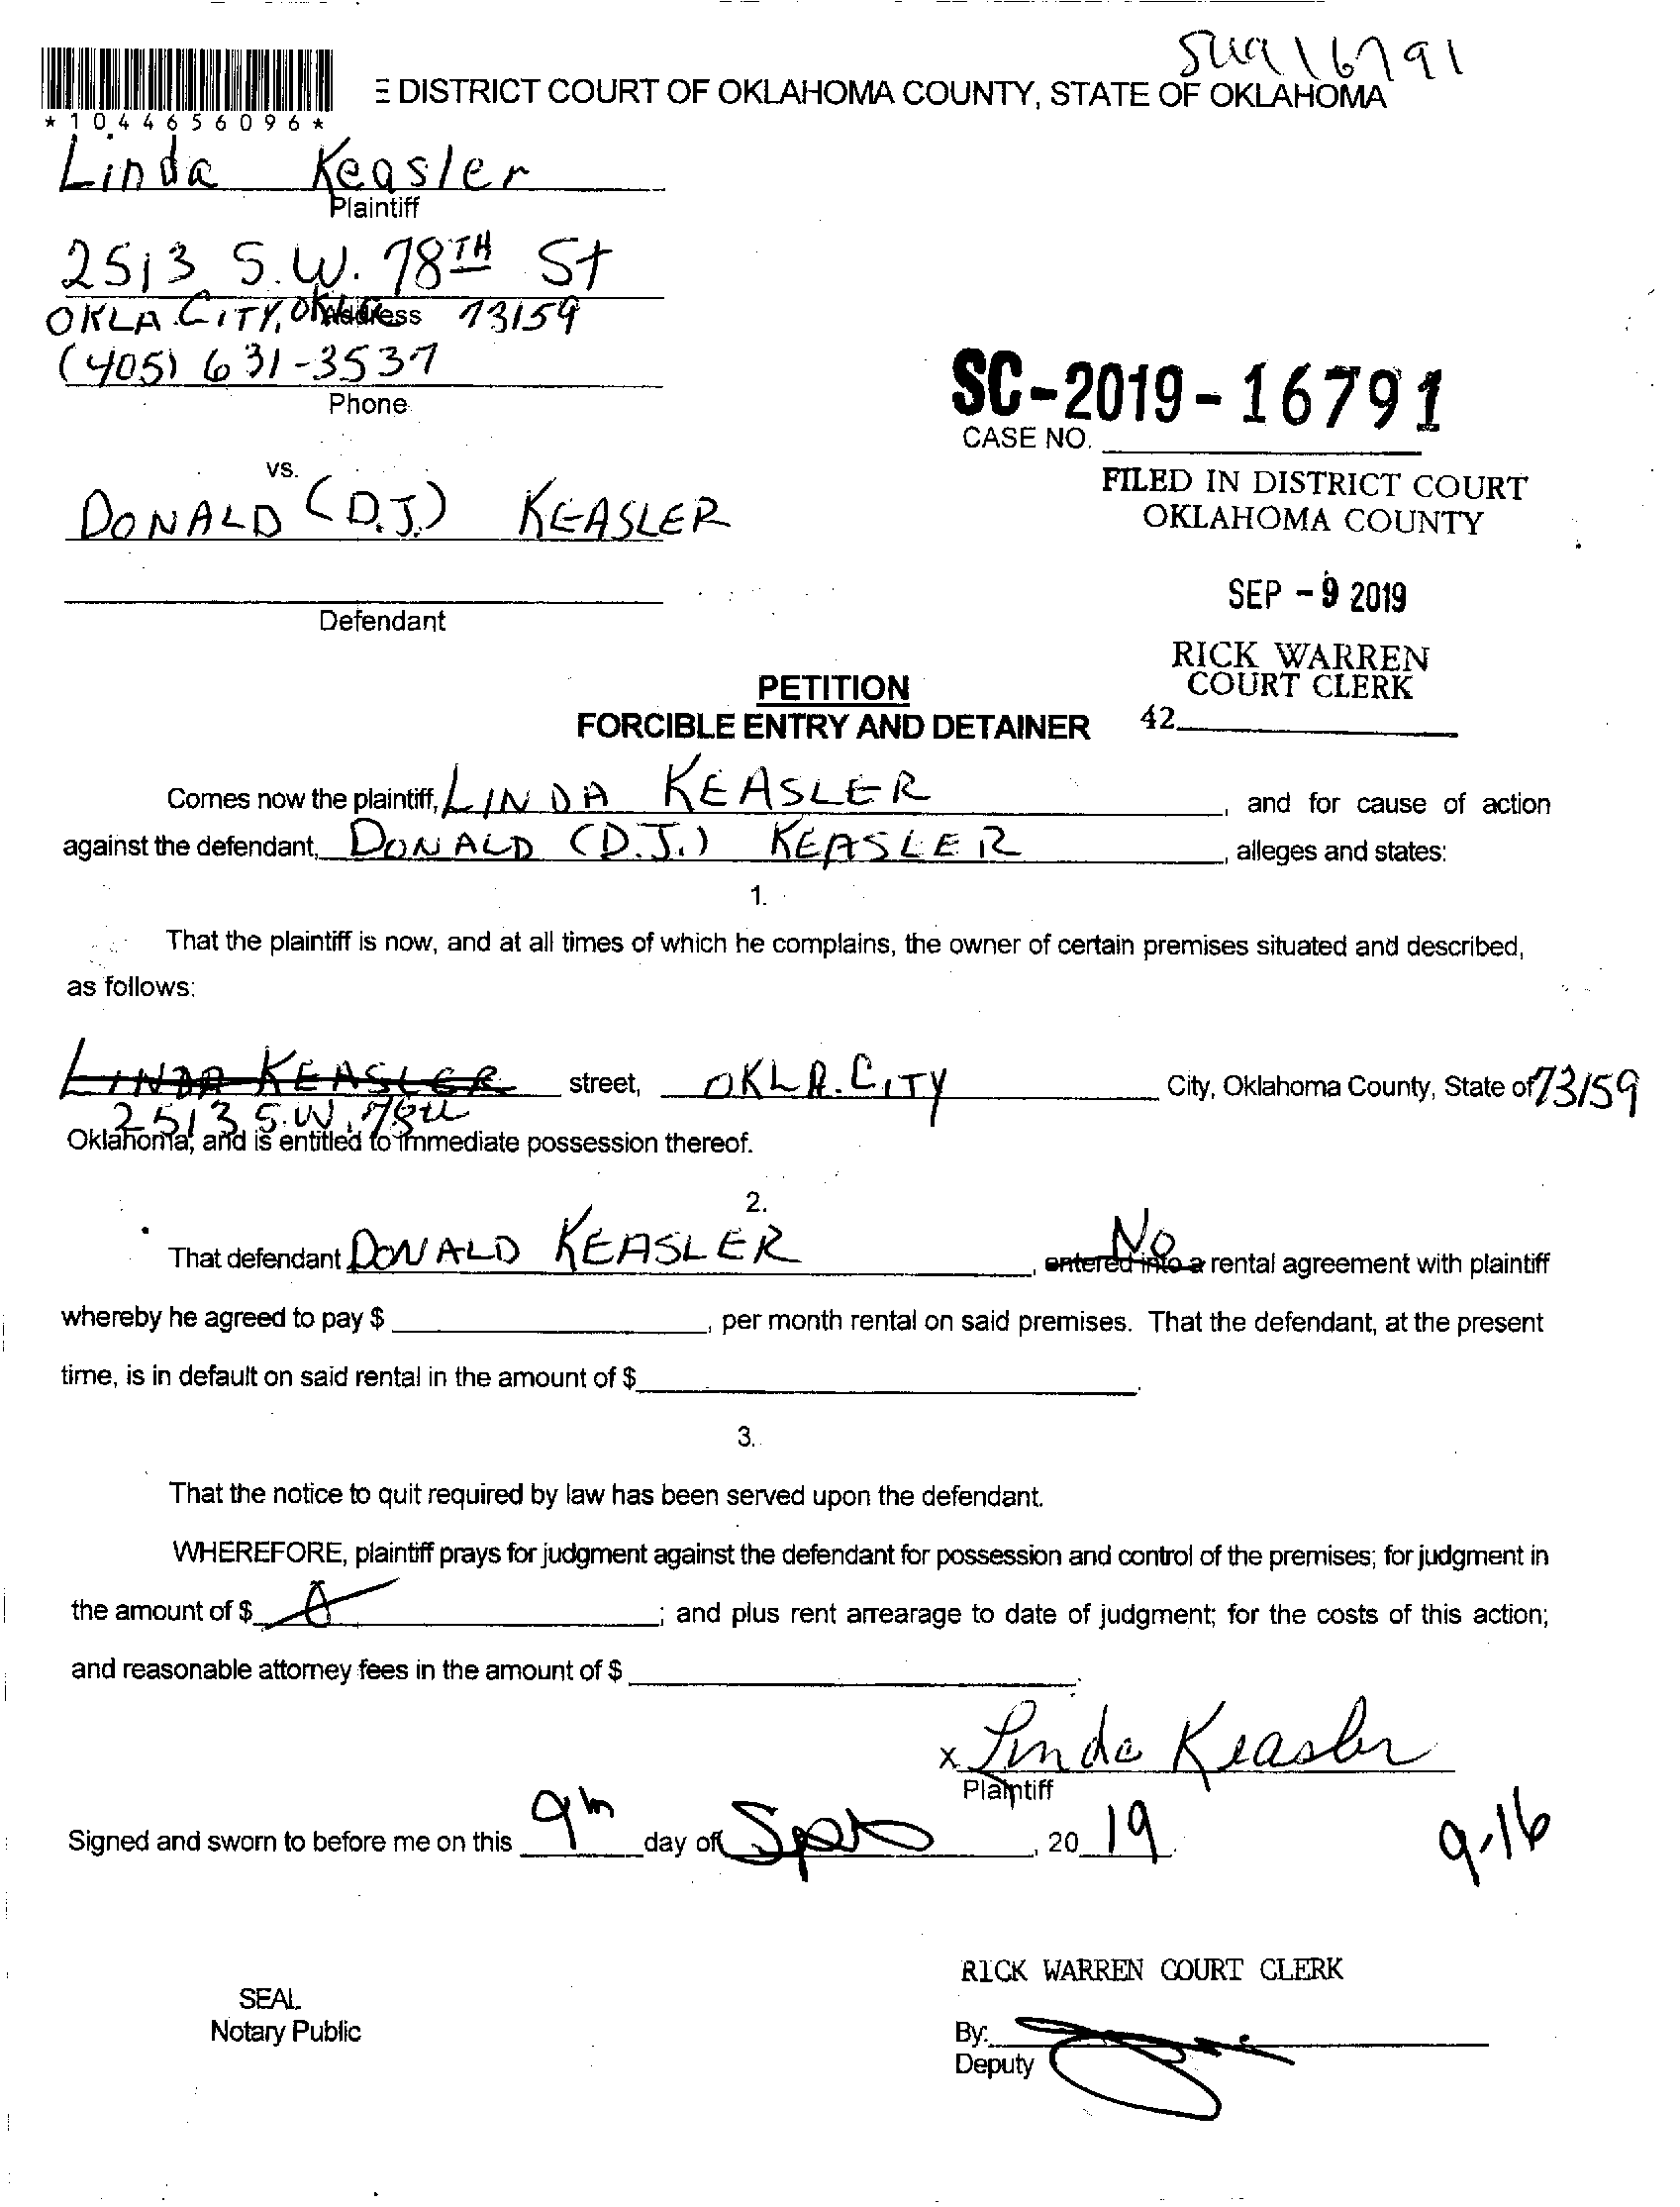 E DISTRICT COURT OF OKLAHOMA COUNTY, STATE OF OKLAHOMA
*1044656096*
Linda Keasler
Plaintiff
2513 S.W. 78TH St
OKLA CITY, Address 73159
(405) 631-3537
Phone
SC-2019-16791
CASE NO.
vs.
DONALD (D.J.) KEASLER
Defendant
FILED IN DISTRICT COURT
OKLAHOMA COUNTY
SEP -9 2019
RICK WARREN
COURT CLERK
42
PETITION
FORCIBLE ENTRY AND DETAINER
Comes now the plaintiff, LINDA KEASLER, and for cause of action
against the defendant, DONALD (D.J.) KEASLER, alleges and states:
1.
That the plaintiff is now, and at all times of which he complains, the owner of certain premises situated and described,
as follows:
LINDA KEASLER street, OKLA. CITY City, Oklahoma County, State of 73159
2513 S.W. 78th
Oklahoma, and is entitled to immediate possession thereof.
2.
That defendant DONALD KEASLER, entered into a No rental agreement with plaintiff
whereby he agreed to pay $, per month rental on said premises. That the defendant, at the present
time, is in default on said rental in the amount of $.
3.
That the notice to quit required by law has been served upon the defendant.
WHEREFORE, plaintiff prays for judgment against the defendant for possession and control of the premises; for judgment in
the amount of $; and plus rent arrearage to date of judgment; for the costs of this action;
and reasonable attorney fees in the amount of $.
x Linda Keasler
Plaintiff
Signed and sworn to before me on this 9th day of Sept, 2019.
9-16
RICK WARREN COURT CLERK
SEAL
Notary Public
By:
Deputy